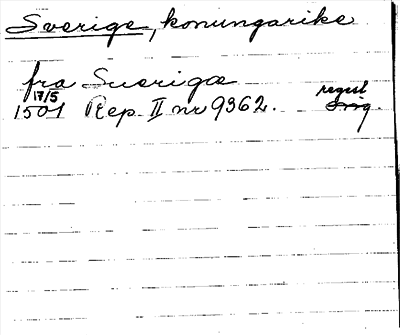 Sverige, konungarike
fra Suerigæ
17/5
1501 Rep. II nr 9362. regest